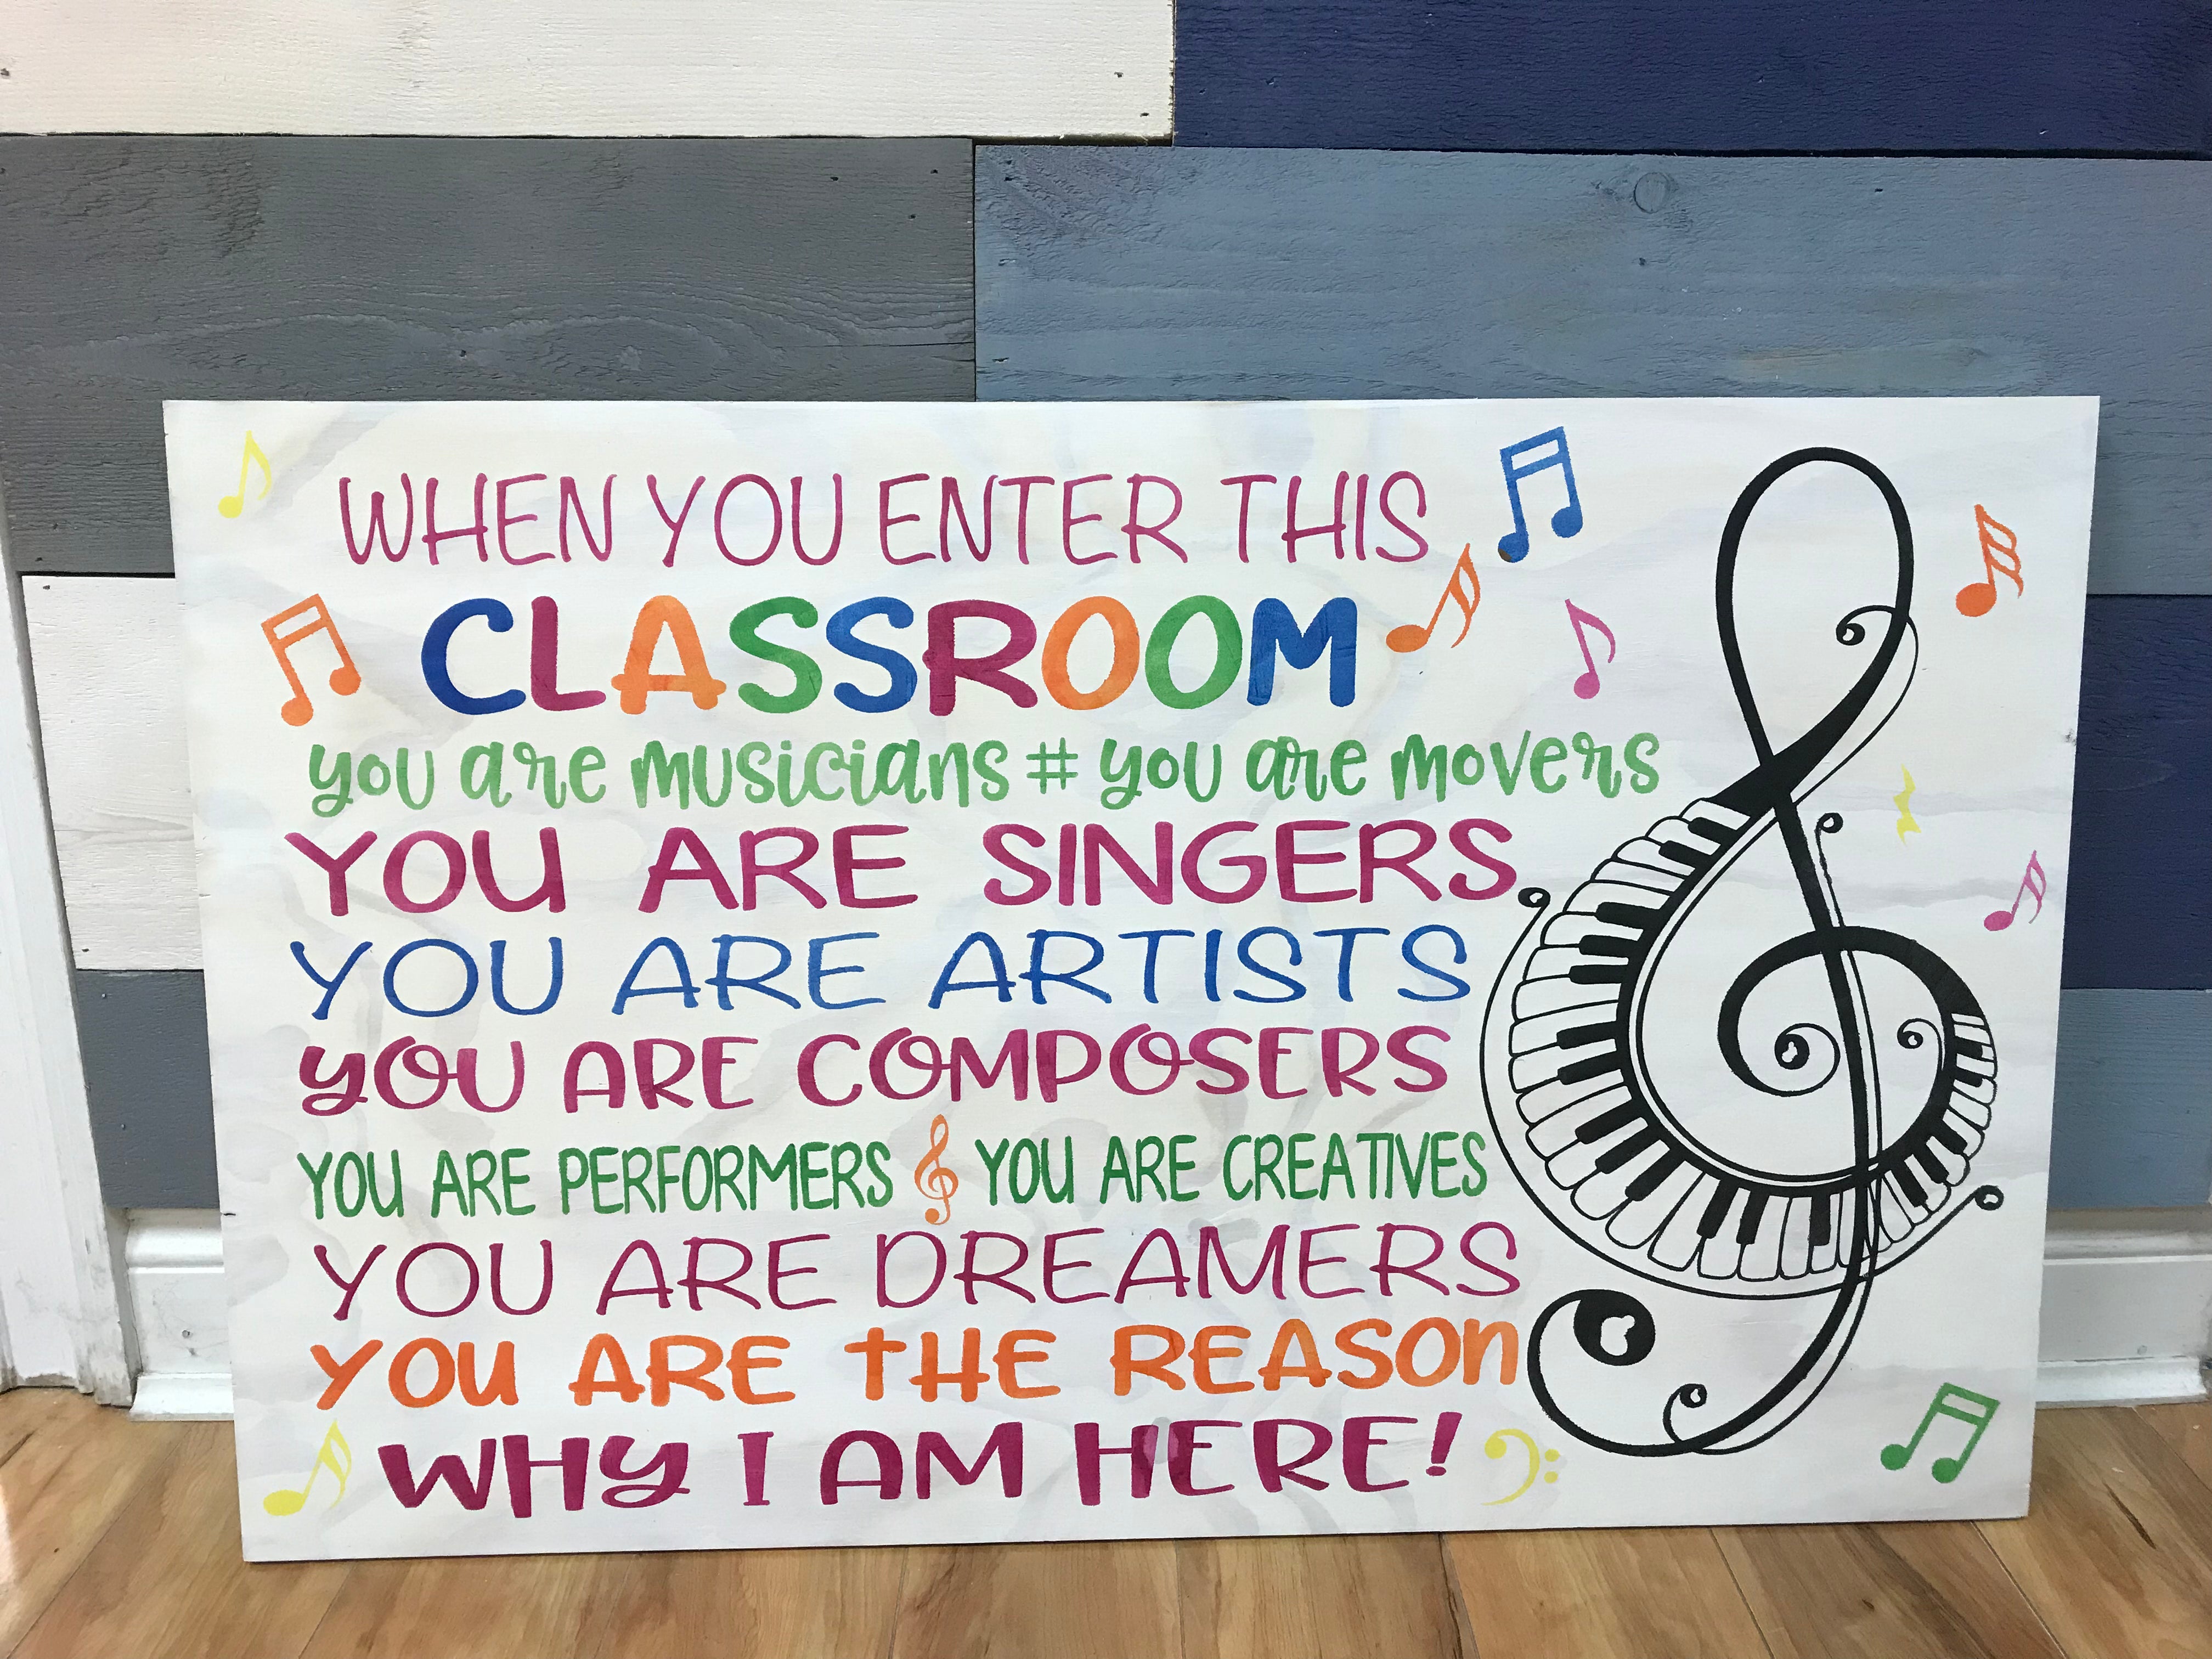 WHEN YOU ENTER THIS
CLASSROOM
you are musicians # you are movers
YOU ARE SINGERS
YOU ARE ARTISTS
YOU ARE COMPOSERS
YOU ARE PERFORMERS YOU ARE CREATIVES
YOU ARE DREAMERS
YOU ARE THE REASON
WHY I AM HERE!